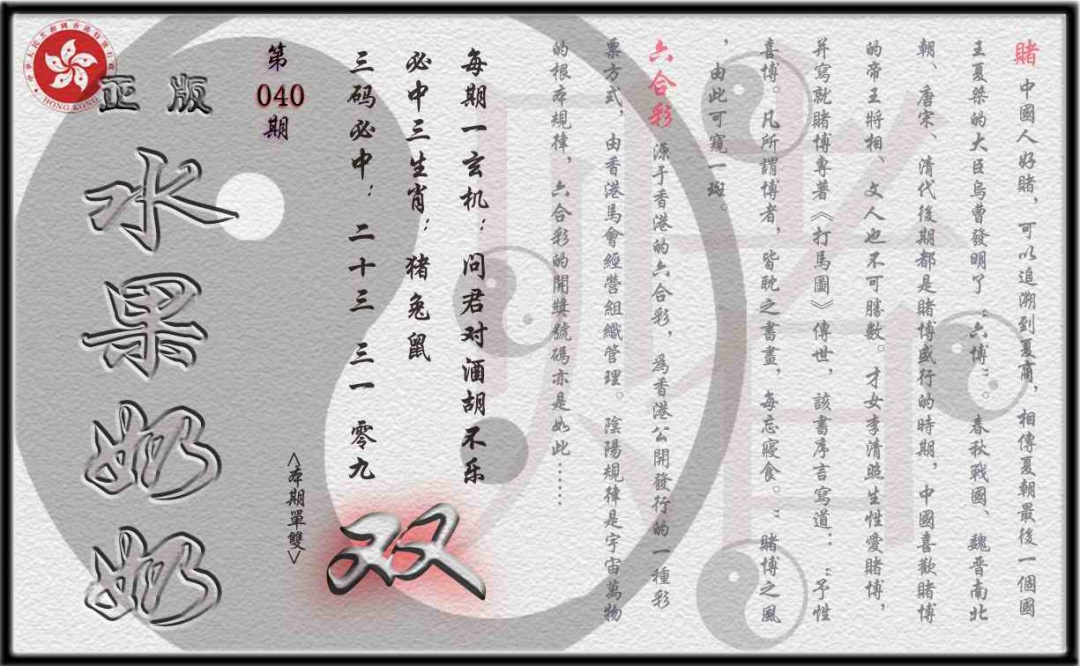 賭 中國人好賭，可以追溯到夏商，相傳夏朝最後一個國
王夏桀的大臣烏曹發明了“六博”。春秋戰國、魏晉南北
朝、唐宋、清代後期都是賭博盛行的時期，中國喜歡賭博
的帝王將相、文人也不可勝數。才女李清照生性愛賭博，
并寫就賭博專著《打馬圖》傳世，該書序言寫道：“予性
喜博。凡所謂博者，皆耽之書畫，每忘寢食。”賭博之風
，由此可窺一斑。
六合彩 源于香港的六合彩，爲香港公開發行的一種彩
票方式，由香港馬會經營組織管理。陰陽規律是宇宙萬物
的根本規律，六合彩的開獎號碼亦是如此……
每期一玄机：问君对酒胡不乐
必中三生肖：猪兔鼠
三码必中：二十三 三一 零九
双
<本期單雙>
第
040
期
正版
水果奶奶
HONG KONG